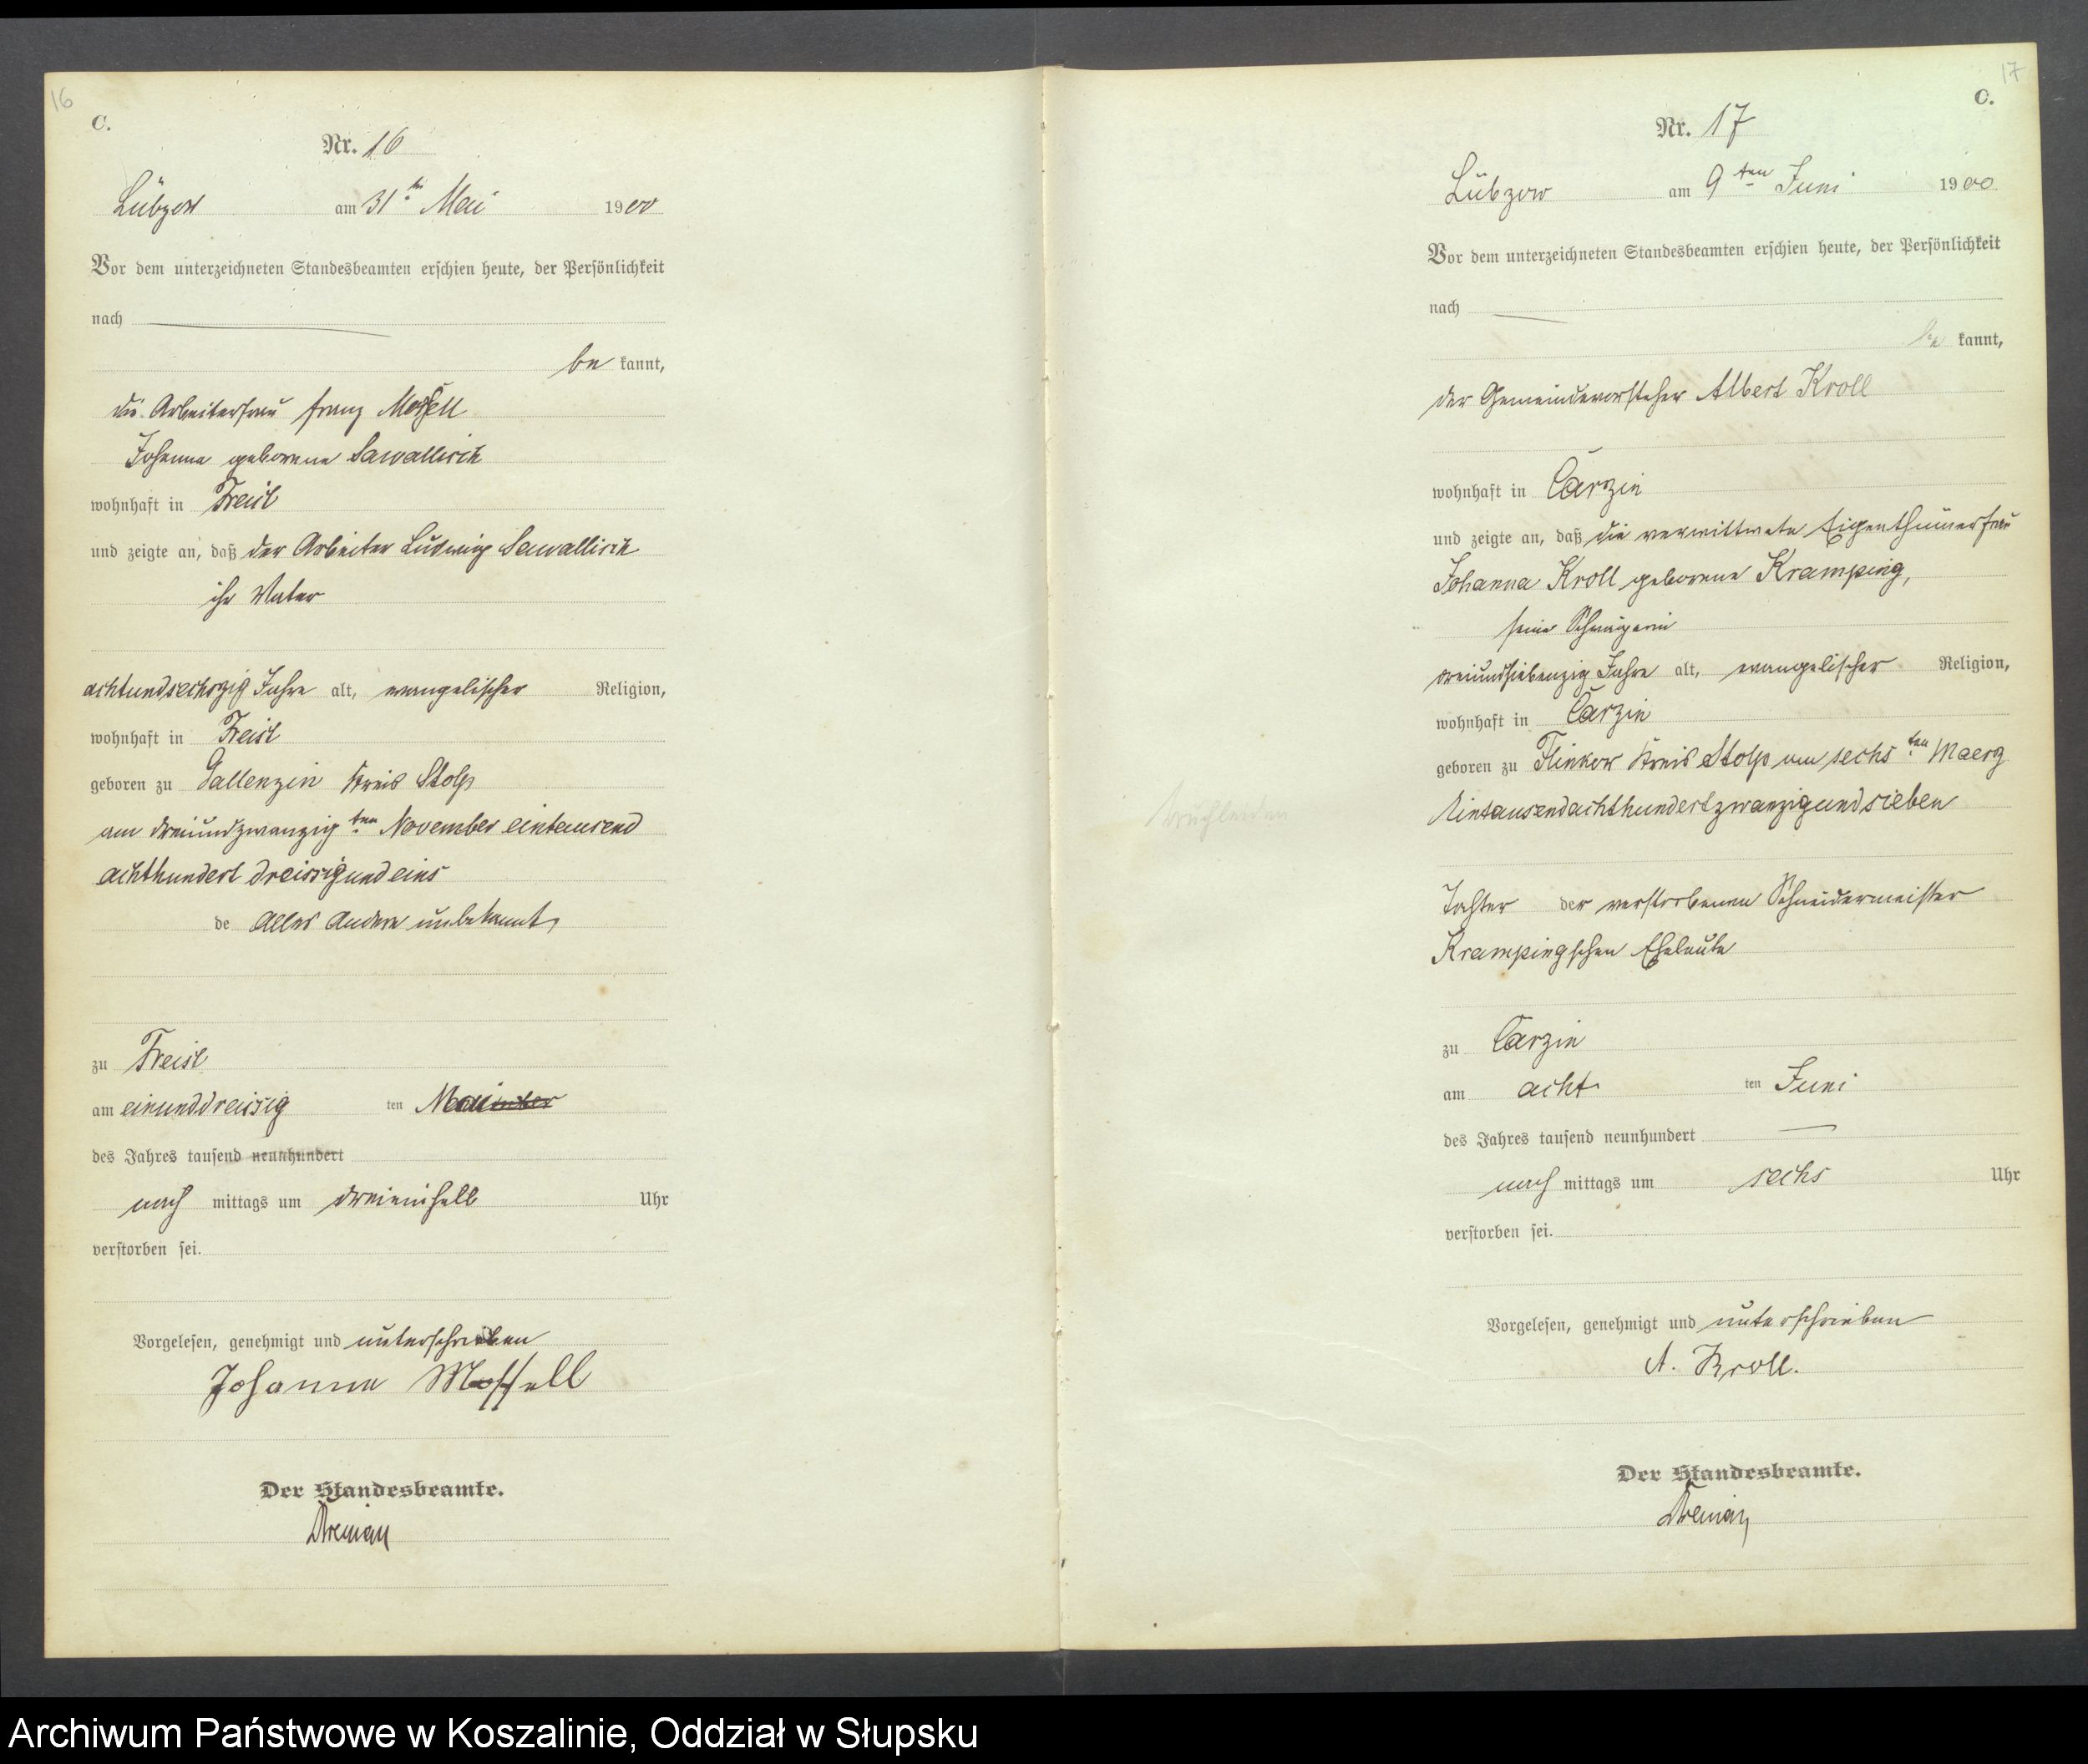 16
C.
Nr. 16
Lübzow am 31ten Mai 1900
Vor dem unterzeichneten Standesbeamten erschien heute, der Persönlichkeit
nach
be kannt,
die Arbeiterfrau Franz Mossell
Johanna geborene Sawallisch
wohnhaft in Freist
und zeigte an, daß der Arbeiter Ludwig Sawallisch
ihr Vater
achtundsechszig Jahre alt, evangelischer Religion,
wohnhaft in Freist
geboren zu Gallenzin Kreis Stolp
am dreiundzwanzig ten November eintausend
achthundert dreissigundeins
de Alles Andere unbekannt,
zu Freist
am einunddreissig ten Mai
des Jahres tausend neunhundert
nach mittags um dreieinhalb Uhr
verstorben sei.
Vorgelesen, genehmigt und unterschrieben
Johanna Mossell
Der Standesbeamte.
17
C.
Nr. 17
Lübzow am 9ten Juni 1900
Vor dem unterzeichneten Standesbeamten erschien heute, der Persönlichkeit
nach
be kannt,
der Gemeindevorsteher Albert Kroll
wohnhaft in Carzin
und zeigte an, daß die verwittwete Eigenthümerfrau
Johanna Kroll geborene Kramping,
seine Schwägerin
dreiundsiebenzig Jahre alt, evangelischer Religion,
wohnhaft in Carzin
geboren zu Flinkow Kreis Stolp am sechs ten Maerz
Eintausendachthundertzwanzigundsieben
Tochter der verstorbenen Schneidermeister
Krampingschen Eheleute
zu Carzin
am acht ten Juni
des Jahres tausend neunhundert
nach mittags um sechs Uhr
verstorben sei.
Vorgelesen, genehmigt und unterschrieben
A. Kroll.
Der Standesbeamte.
Archiwum Państwowe w Koszalinie, Oddział w Słupsku